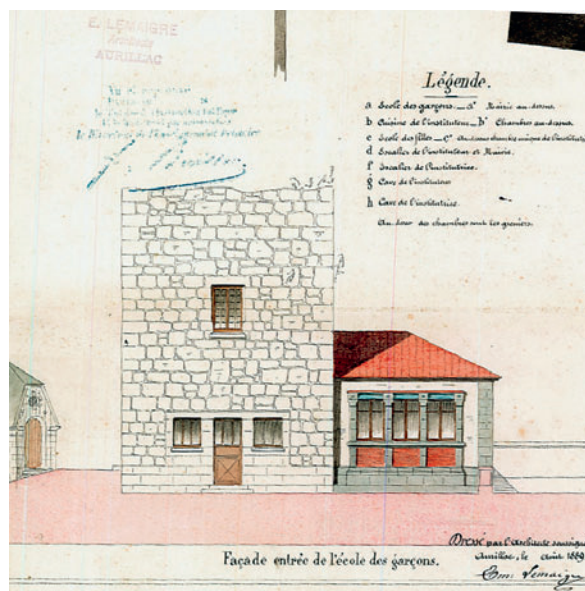 E. LEMAIGRE
Architecte
AURILLAC
le Directeur de l'Enseignement Primaire
Légende.
a Ecole des garçons _ a' Mairie au-dessus.
b Cuisine de l'instituteur _ b' Chambres au-dessus.
c Ecole des filles _ c' Au-dessus chambre unique de l'institutrice
d Escalier de l'instituteur et Mairie.
f Escalier de l'institutrice.
g Cave de l'instituteur
h Cave de l'institutrice.
Au-dessus des chambres sont les greniers.
Façade entrée de l'école des garçons.
Dressé par l'Architecte soussigné
Aurillac, le Août 1889
Em. Lemaigre